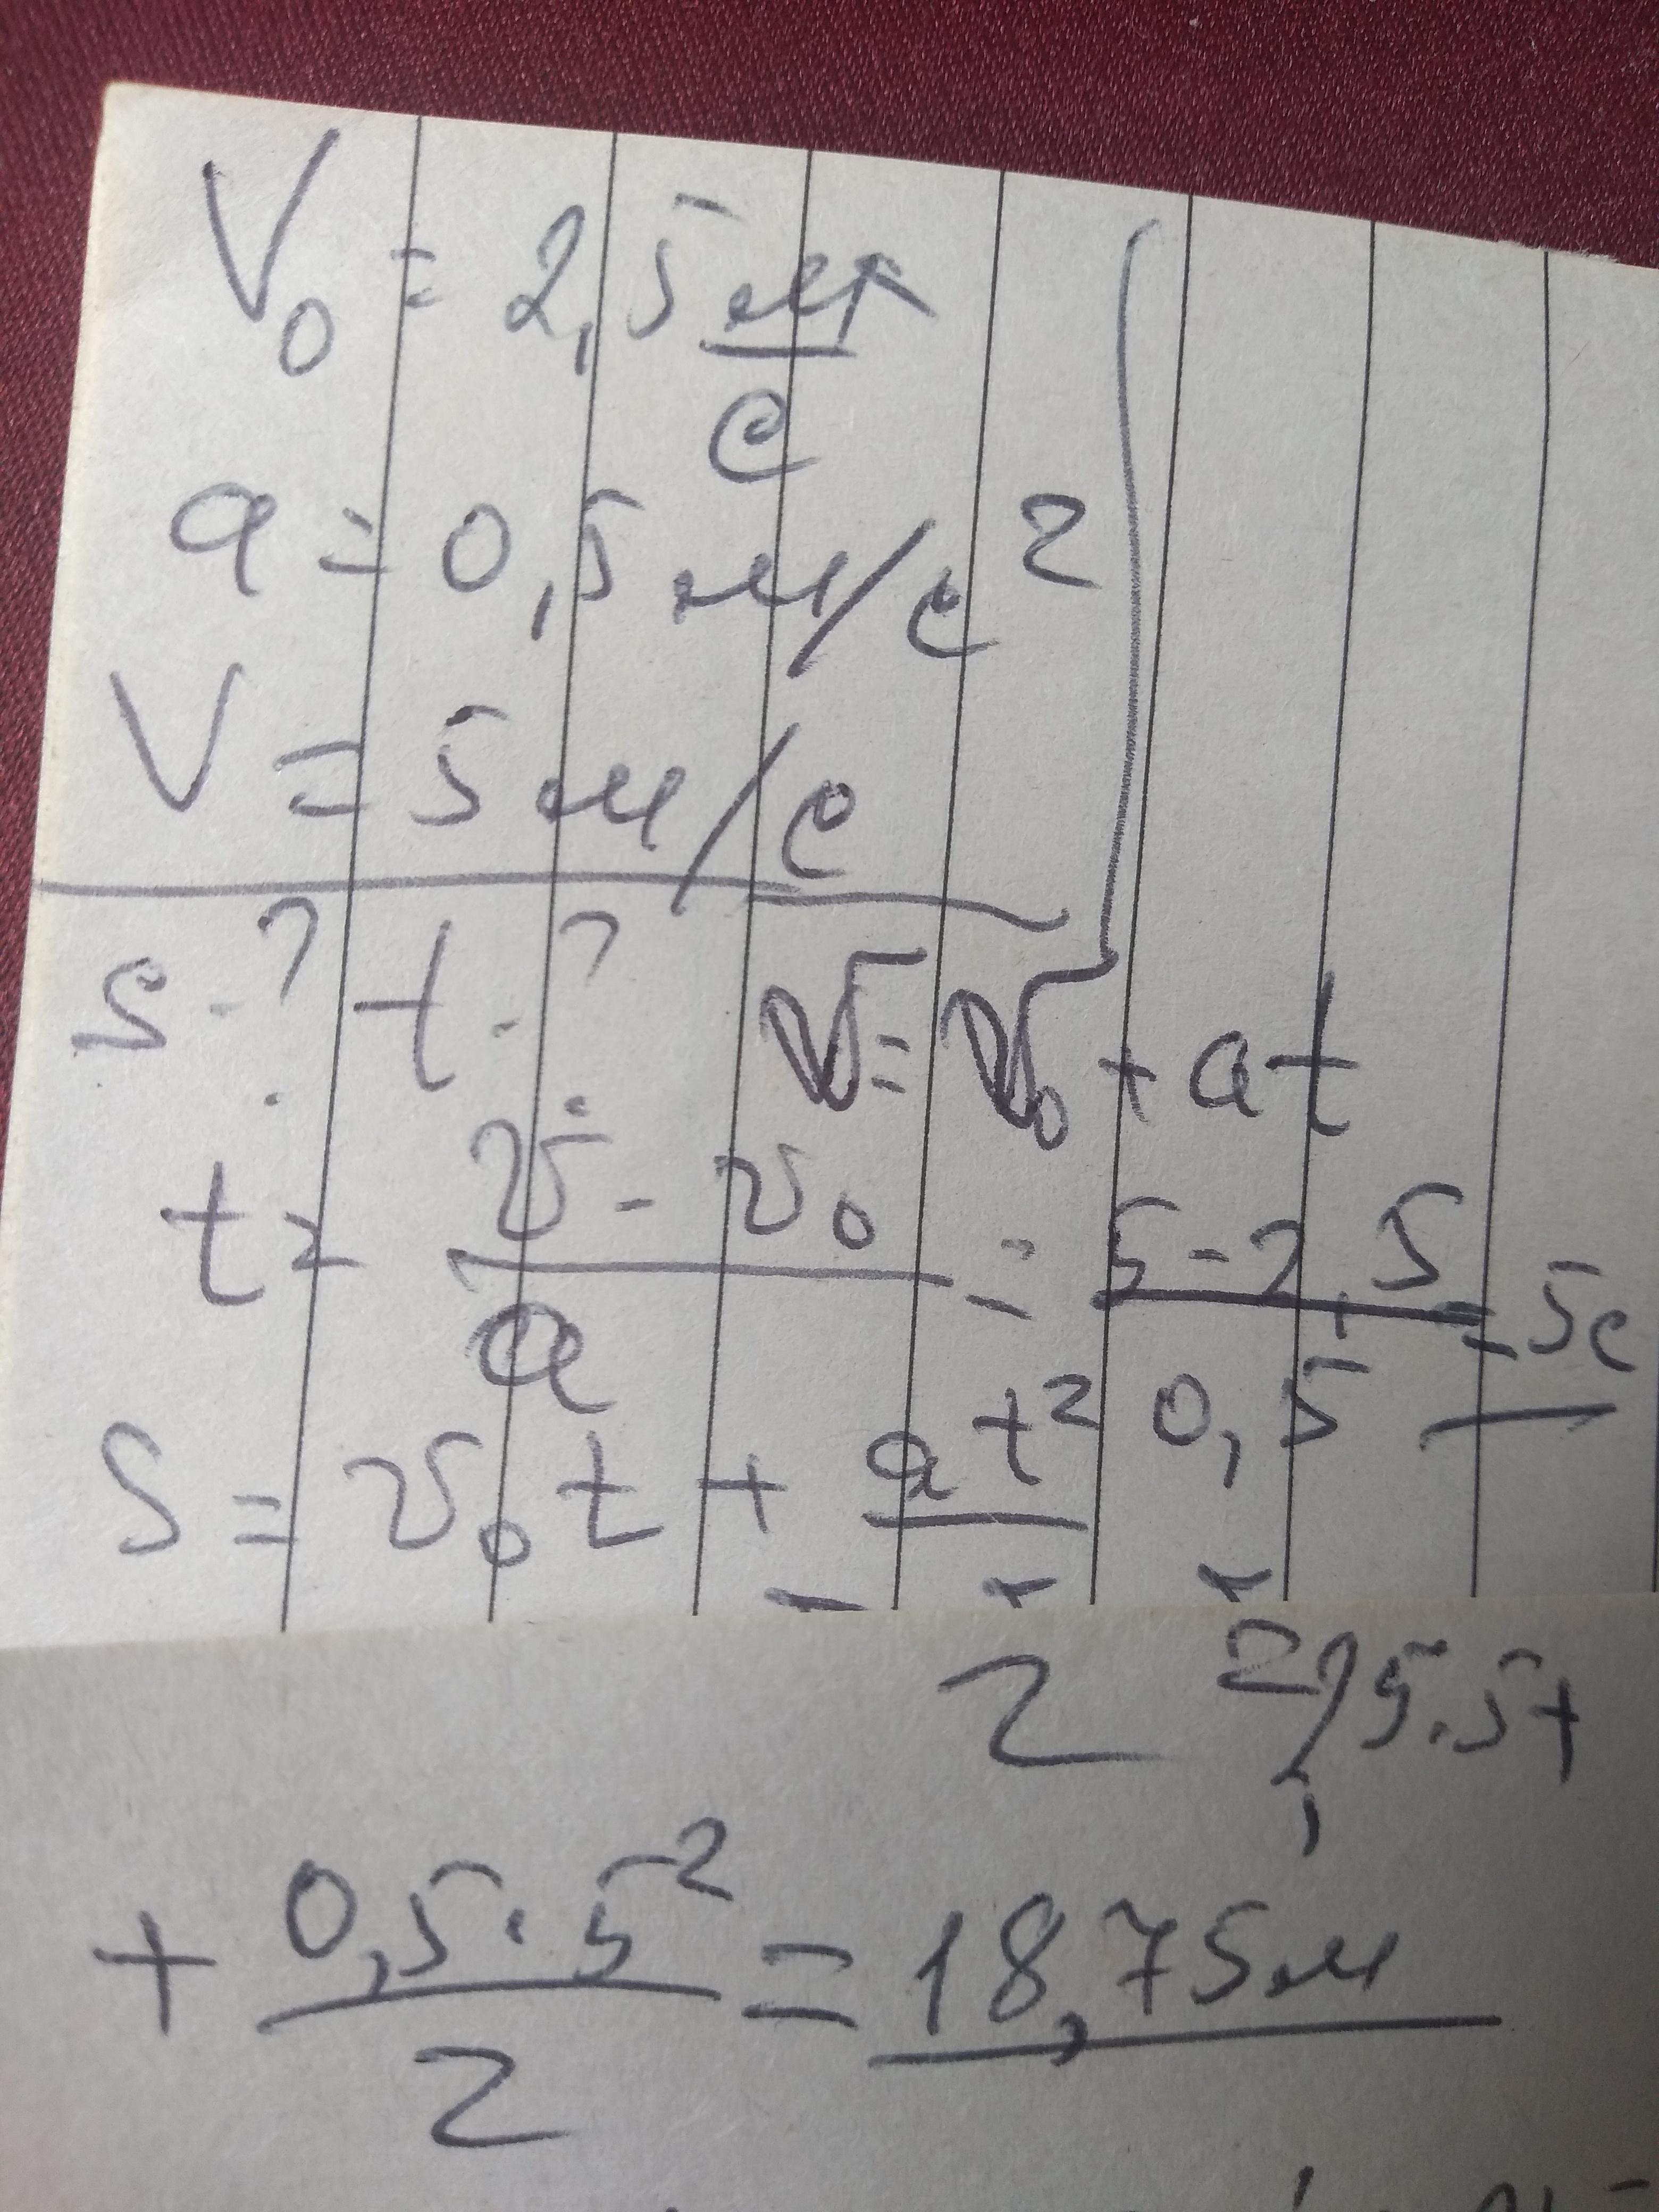 V₀ = 2,5 м/с
a = 0,5 м/с²
V = 5 м/с
S - ? t - ?
v = v₀ + at
t = (v - v₀)/a = (5 - 2,5)/0,5 = 5с
S = v₀t + at²/2 = 2,5·5+
+ (0,5·5²)/2 = 18,75м